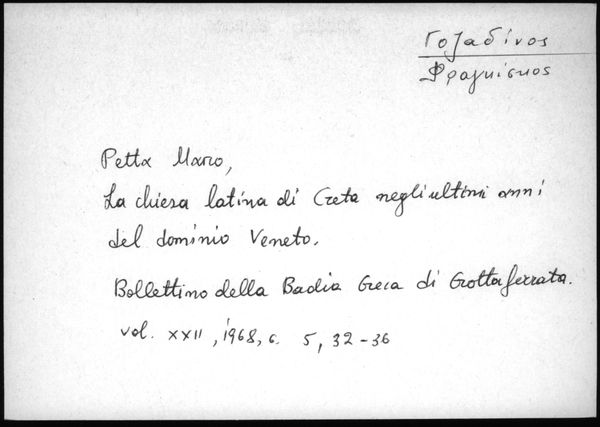 Γοζαδίνος
Φραγκίσκος
Petta Marco,
La chiesa latina di Creta negli ultimi anni
del dominio Veneto.
Bollettino della Badia Greca di Grottaferrata.
vol. XXII, 1968, c. 5, 32-36